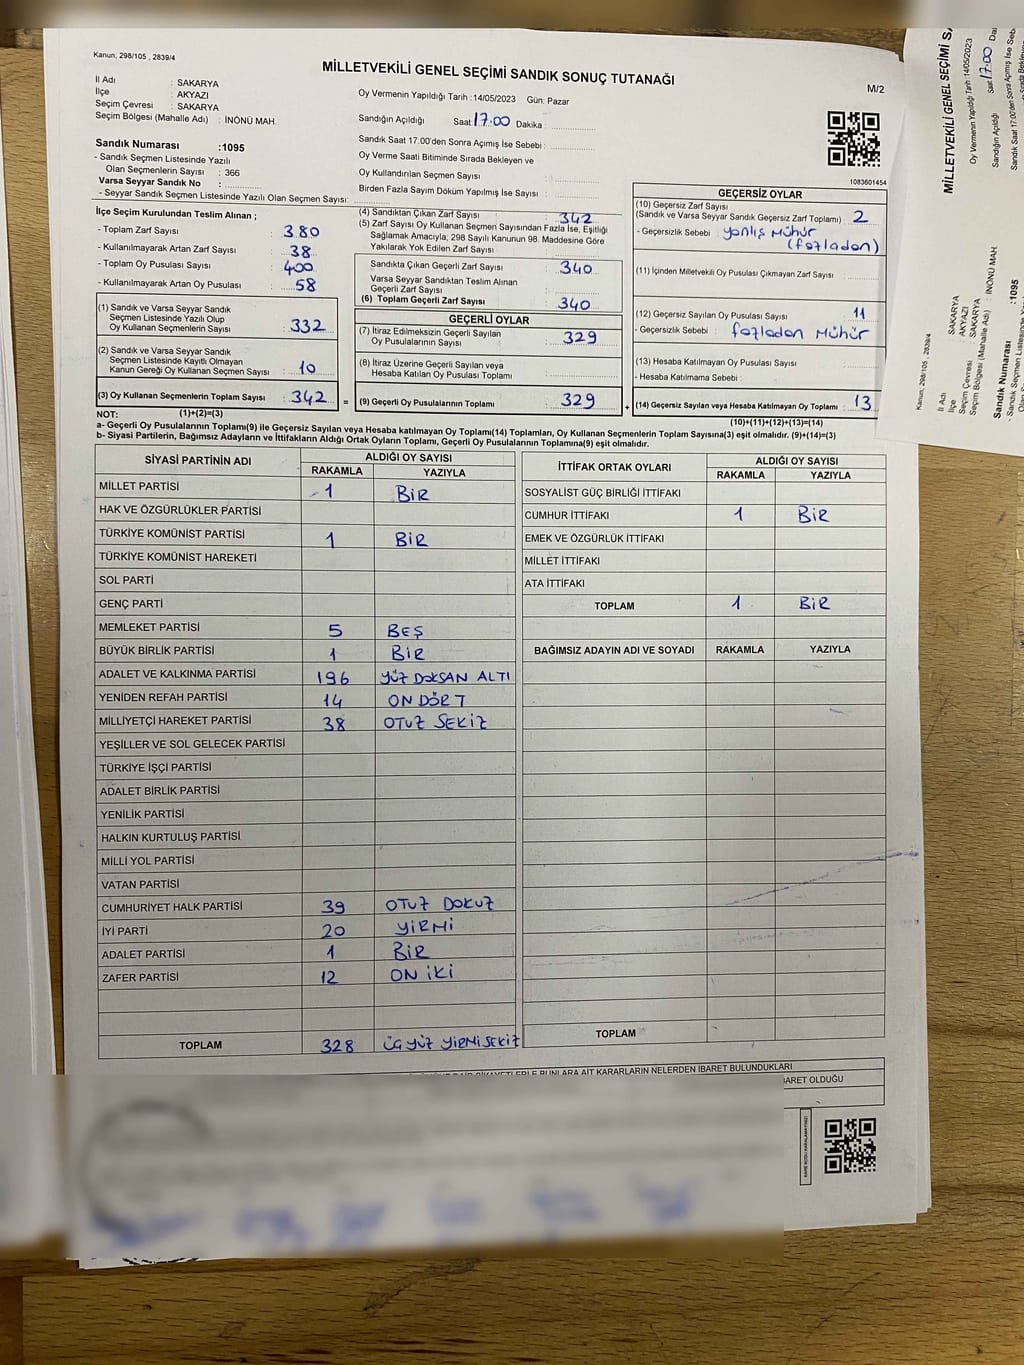 Kanun; 298/105 , 2839/4
MİLLETVEKİLİ GENEL SEÇİMİ SANDIK SONUÇ TUTANAĞI
M/2
İl Adı : SAKARYA
İlçe : AKYAZI
Seçim Çevresi : SAKARYA
Seçim Bölgesi (Mahalle Adı) : İNÖNÜ MAH.
Oy Vermenin Yapıldığı Tarih :14/05/2023 Gün: Pazar
Sandığın Açıldığı Saat 17:00 Dakika :
Sandık Saat 17.00'den Sonra Açımış İse Sebebi :
Oy Verme Saati Bitiminde Sırada Bekleyen ve
Oy Kullandırılan Seçmen Sayısı :
Birden Fazla Sayım Döküm Yapılmış İse Sayısı :
1083601454
Sandık Numarası :1095
- Sandık Seçmen Listesinde Yazılı
Olan Seçmenlerin Sayısı : 366
Varsa Seyyar Sandık No :
- Seyyar Sandık Seçmen Listesinde Yazılı Olan Seçmen Sayısı:
İlçe Seçim Kurulundan Teslim Alınan ;
- Toplam Zarf Sayısı : 380
- Kullanılmayarak Artan Zarf Sayısı : 38
- Toplam Oy Pusulası Sayısı : 400
- Kullanılmayarak Artan Oy Pusulası : 58
(1) Sandık ve Varsa Seyyar Sandık
Seçmen Listesinde Yazılı Olup
Oy Kullanan Seçmenlerin Sayısı : 332
(2) Sandık ve Varsa Seyyar Sandık
Seçmen Listesinde Kayıtlı Olmayan
Kanun Gereği Oy Kullanan Seçmen Sayısı : 10
(3) Oy Kullanan Seçmenlerin Toplam Sayısı : 342 =
(4) Sandıktan Çıkan Zarf Sayısı : 342
(5) Zarf Sayısı Oy Kullanan Seçmen Sayısından Fazla İse, Eşitliği
Sağlamak Amacıyla; 298 Sayılı Kanunun 98. Maddesine Göre
Yakılarak Yok Edilen Zarf Sayısı :
Sandıkta Çıkan Geçerli Zarf Sayısı : 340
Varsa Seyyar Sandıktan Teslim Alınan
Geçerli Zarf Sayısı :
(6) Toplam Geçerli Zarf Sayısı : 340
GEÇERLİ OYLAR
(7) İtiraz Edilmeksizin Geçerli Sayılan
Oy Pusulalarının Sayısı : 329
(8) İtiraz Üzerine Geçerli Sayılan veya
Hesaba Katılan Oy Pusulası Toplamı :
(9) Geçerli Oy Pusulalarının Toplamı : 329 +
GEÇERSİZ OYLAR
(10) Geçersiz Zarf Sayısı
(Sandık ve Varsa Seyyar Sandık Geçersiz Zarf Toplamı) : 2
- Geçersizlik Sebebi : yanlış Mühür
(fazladan)
(11) İçinden Milletvekili Oy Pusulası Çıkmayan Zarf Sayısı :
(12) Geçersiz Sayılan Oy Pusulası Sayısı : 11
- Geçersizlik Sebebi : fazladan Mühür
(13) Hesaba Katılmayan Oy Pusulası Sayısı :
- Hesaba Katılmama Sebebi :
(14) Geçersiz Sayılan veya Hesaba Katılmayan Oy Toplamı : 13
NOT: (1)+(2)=(3) (10)+(11)+(12)+(13)=(14)
a- Geçerli Oy Pusulalarının Toplamı(9) ile Geçersiz Sayılan veya Hesaba katılmayan Oy Toplamı(14) Toplamları, Oy Kullanan Seçmenlerin Toplam Sayısına(3) eşit olmalıdır. (9)+(14)=(3)
b- Siyasi Partilerin, Bağımsız Adayların ve İttifakların Aldığı Ortak Oyların Toplamı, Geçerli Oy Pusulalarının Toplamına(9) eşit olmalıdır.
SİYASİ PARTİNİN ADI ALDIĞI OY SAYISI
RAKAMLA YAZIYLA
MİLLET PARTİSİ 1 BİR
HAK VE ÖZGÜRLÜKLER PARTİSİ
TÜRKİYE KOMÜNİST PARTİSİ 1 BİR
TÜRKİYE KOMÜNİST HAREKETİ
SOL PARTİ
GENÇ PARTİ
MEMLEKET PARTİSİ 5 BEŞ
BÜYÜK BİRLİK PARTİSİ 1 BİR
ADALET VE KALKINMA PARTİSİ 196 YÜZ DOKSAN ALTI
YENİDEN REFAH PARTİSİ 14 ON DÖRT
MİLLİYETÇİ HAREKET PARTİSİ 38 OTUZ SEKİZ
YEŞİLLER VE SOL GELECEK PARTİSİ
TÜRKİYE İŞÇİ PARTİSİ
ADALET BİRLİK PARTİSİ
YENİLİK PARTİSİ
HALKIN KURTULUŞ PARTİSİ
MİLLİ YOL PARTİSİ
VATAN PARTİSİ
CUMHURİYET HALK PARTİSİ 39 OTUZ DOKUZ
İYİ PARTİ 20 YİRMİ
ADALET PARTİSİ 1 BİR
ZAFER PARTİSİ 12 ON İKİ
TOPLAM 328 ÜÇ YÜZ YİRMİ SEKİZ
İTTİFAK ORTAK OYLARI ALDIĞI OY SAYISI
RAKAMLA YAZIYLA
SOSYALİST GÜÇ BİRLİĞİ İTTİFAKI
CUMHUR İTTİFAKI 1 BİR
EMEK VE ÖZGÜRLÜK İTTİFAKI
MİLLET İTTİFAKI
ATA İTTİFAKI
TOPLAM 1 BİR
BAĞIMSIZ ADAYIN ADI VE SOYADI RAKAMLA YAZIYLA
TOPLAM
BUNLARA AİT KARARLARIN NELERDEN İBARET BULUNDUKLARI
İBARET OLDUĞU
Kanun; 298/105 , 2839/4
MİLLETVEKİLİ GENEL SEÇİMİ
İl Adı : SAKARYA
İlçe : AKYAZI
Seçim Çevresi : SAKARYA
Seçim Bölgesi (Mahalle Adı) : İNÖNÜ MAH.
Oy Vermenin Yapıldığı Tarih :14/05/2023
Sandığın Açıldığı Saat 17:00
Sandık Saat 17.00'den Sonra Açımış İse
Sandık Numarası :1095